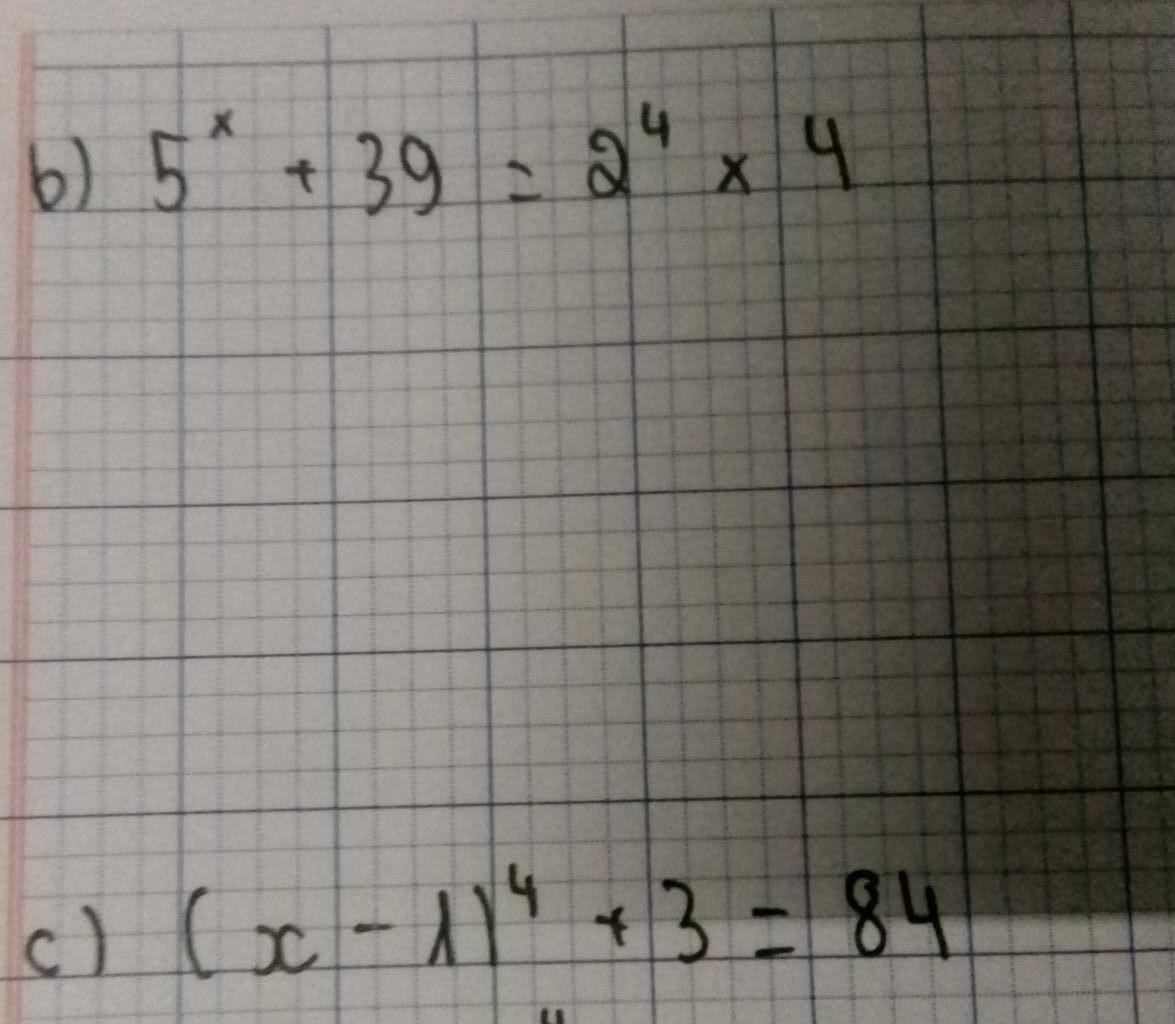 b) 5ˣ + 39 = 2⁴ × 4
c) (x - 1)⁴ + 3 = 84